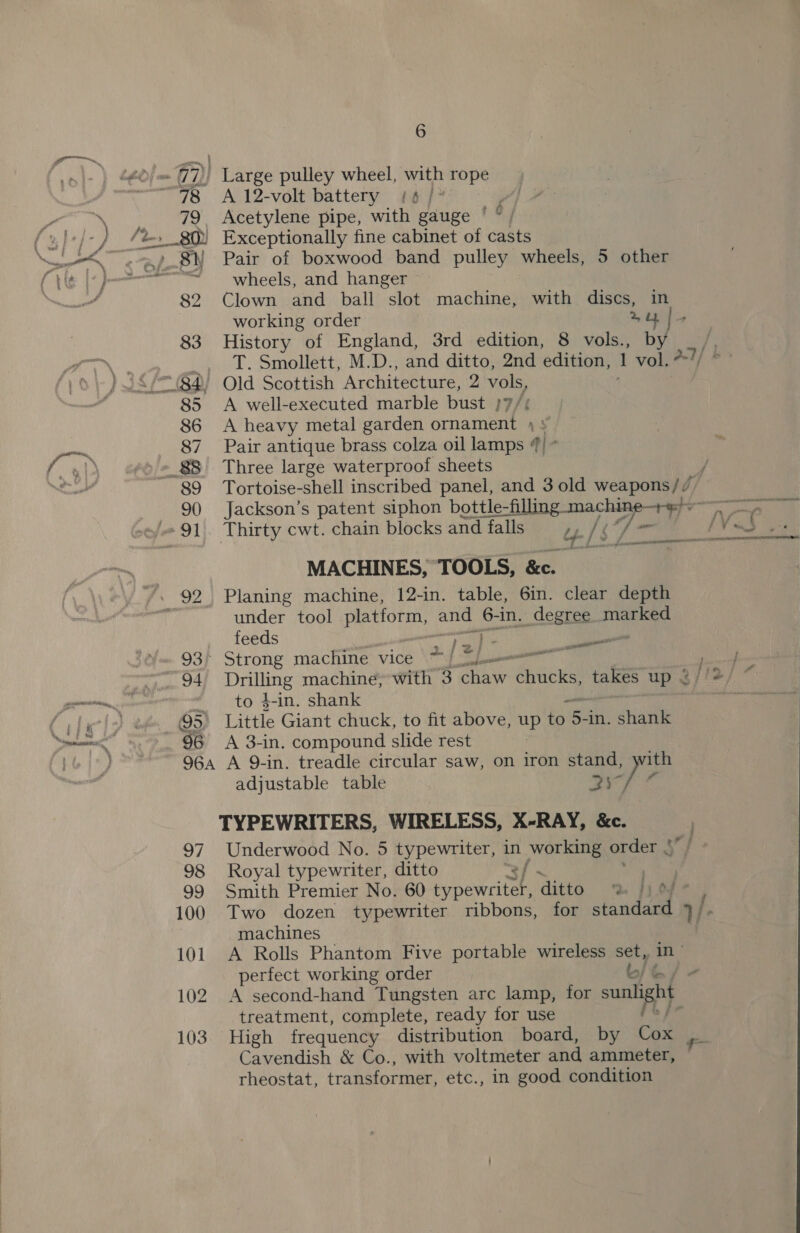 6
77 Large pulley wheel, with rope
78 A 12-volt battery
79 Acetylene pipe, with gauge
80 Exceptionally fine cabinet of casts
81 Pair of boxwood band pulley wheels, 5 other
wheels, and hanger
82 Clown and ball slot machine, with discs, in
working order 24/-
83 History of England, 3rd edition, 8 vols., by
T. Smollett, M.D., and ditto, 2nd edition, 1 vol.
84 Old Scottish Architecture, 2 vols,
85 A well-executed marble bust
86 A heavy metal garden ornament
87 Pair antique brass colza oil lamps
88 Three large waterproof sheets
89 Tortoise-shell inscribed panel, and 3 old weapons
90 Jackson's patent siphon bottle-filling machine
91 Thirty cwt. chain blocks and falls
MACHINES, TOOLS, &c.
92 Planing machine, 12-in. table, 6in. clear depth
under tool platform, and 6-in. degree marked
feeds
93 Strong machine vice
94 Drilling machine, with 3 chaw chucks, takes up
to ¾-in. shank
95 Little Giant chuck, to fit above, up to 5-in. shank
96 A 3-in. compound slide rest
96A A 9-in. treadle circular saw, on iron stand, with
adjustable table
TYPEWRITERS, WIRELESS, X-RAY, &c.
97 Underwood No. 5 typewriter, in working order
98 Royal typewriter, ditto
99 Smith Premier No. 60 typewriter, ditto
100 Two dozen typewriter ribbons, for standard
machines
101 A Rolls Phantom Five portable wireless set, in
perfect working order
102 A second-hand Tungsten arc lamp, for sunlight
treatment, complete, ready for use
103 High frequency distribution board, by Cox
Cavendish & Co., with voltmeter and ammeter,
rheostat, transformer, etc., in good condition